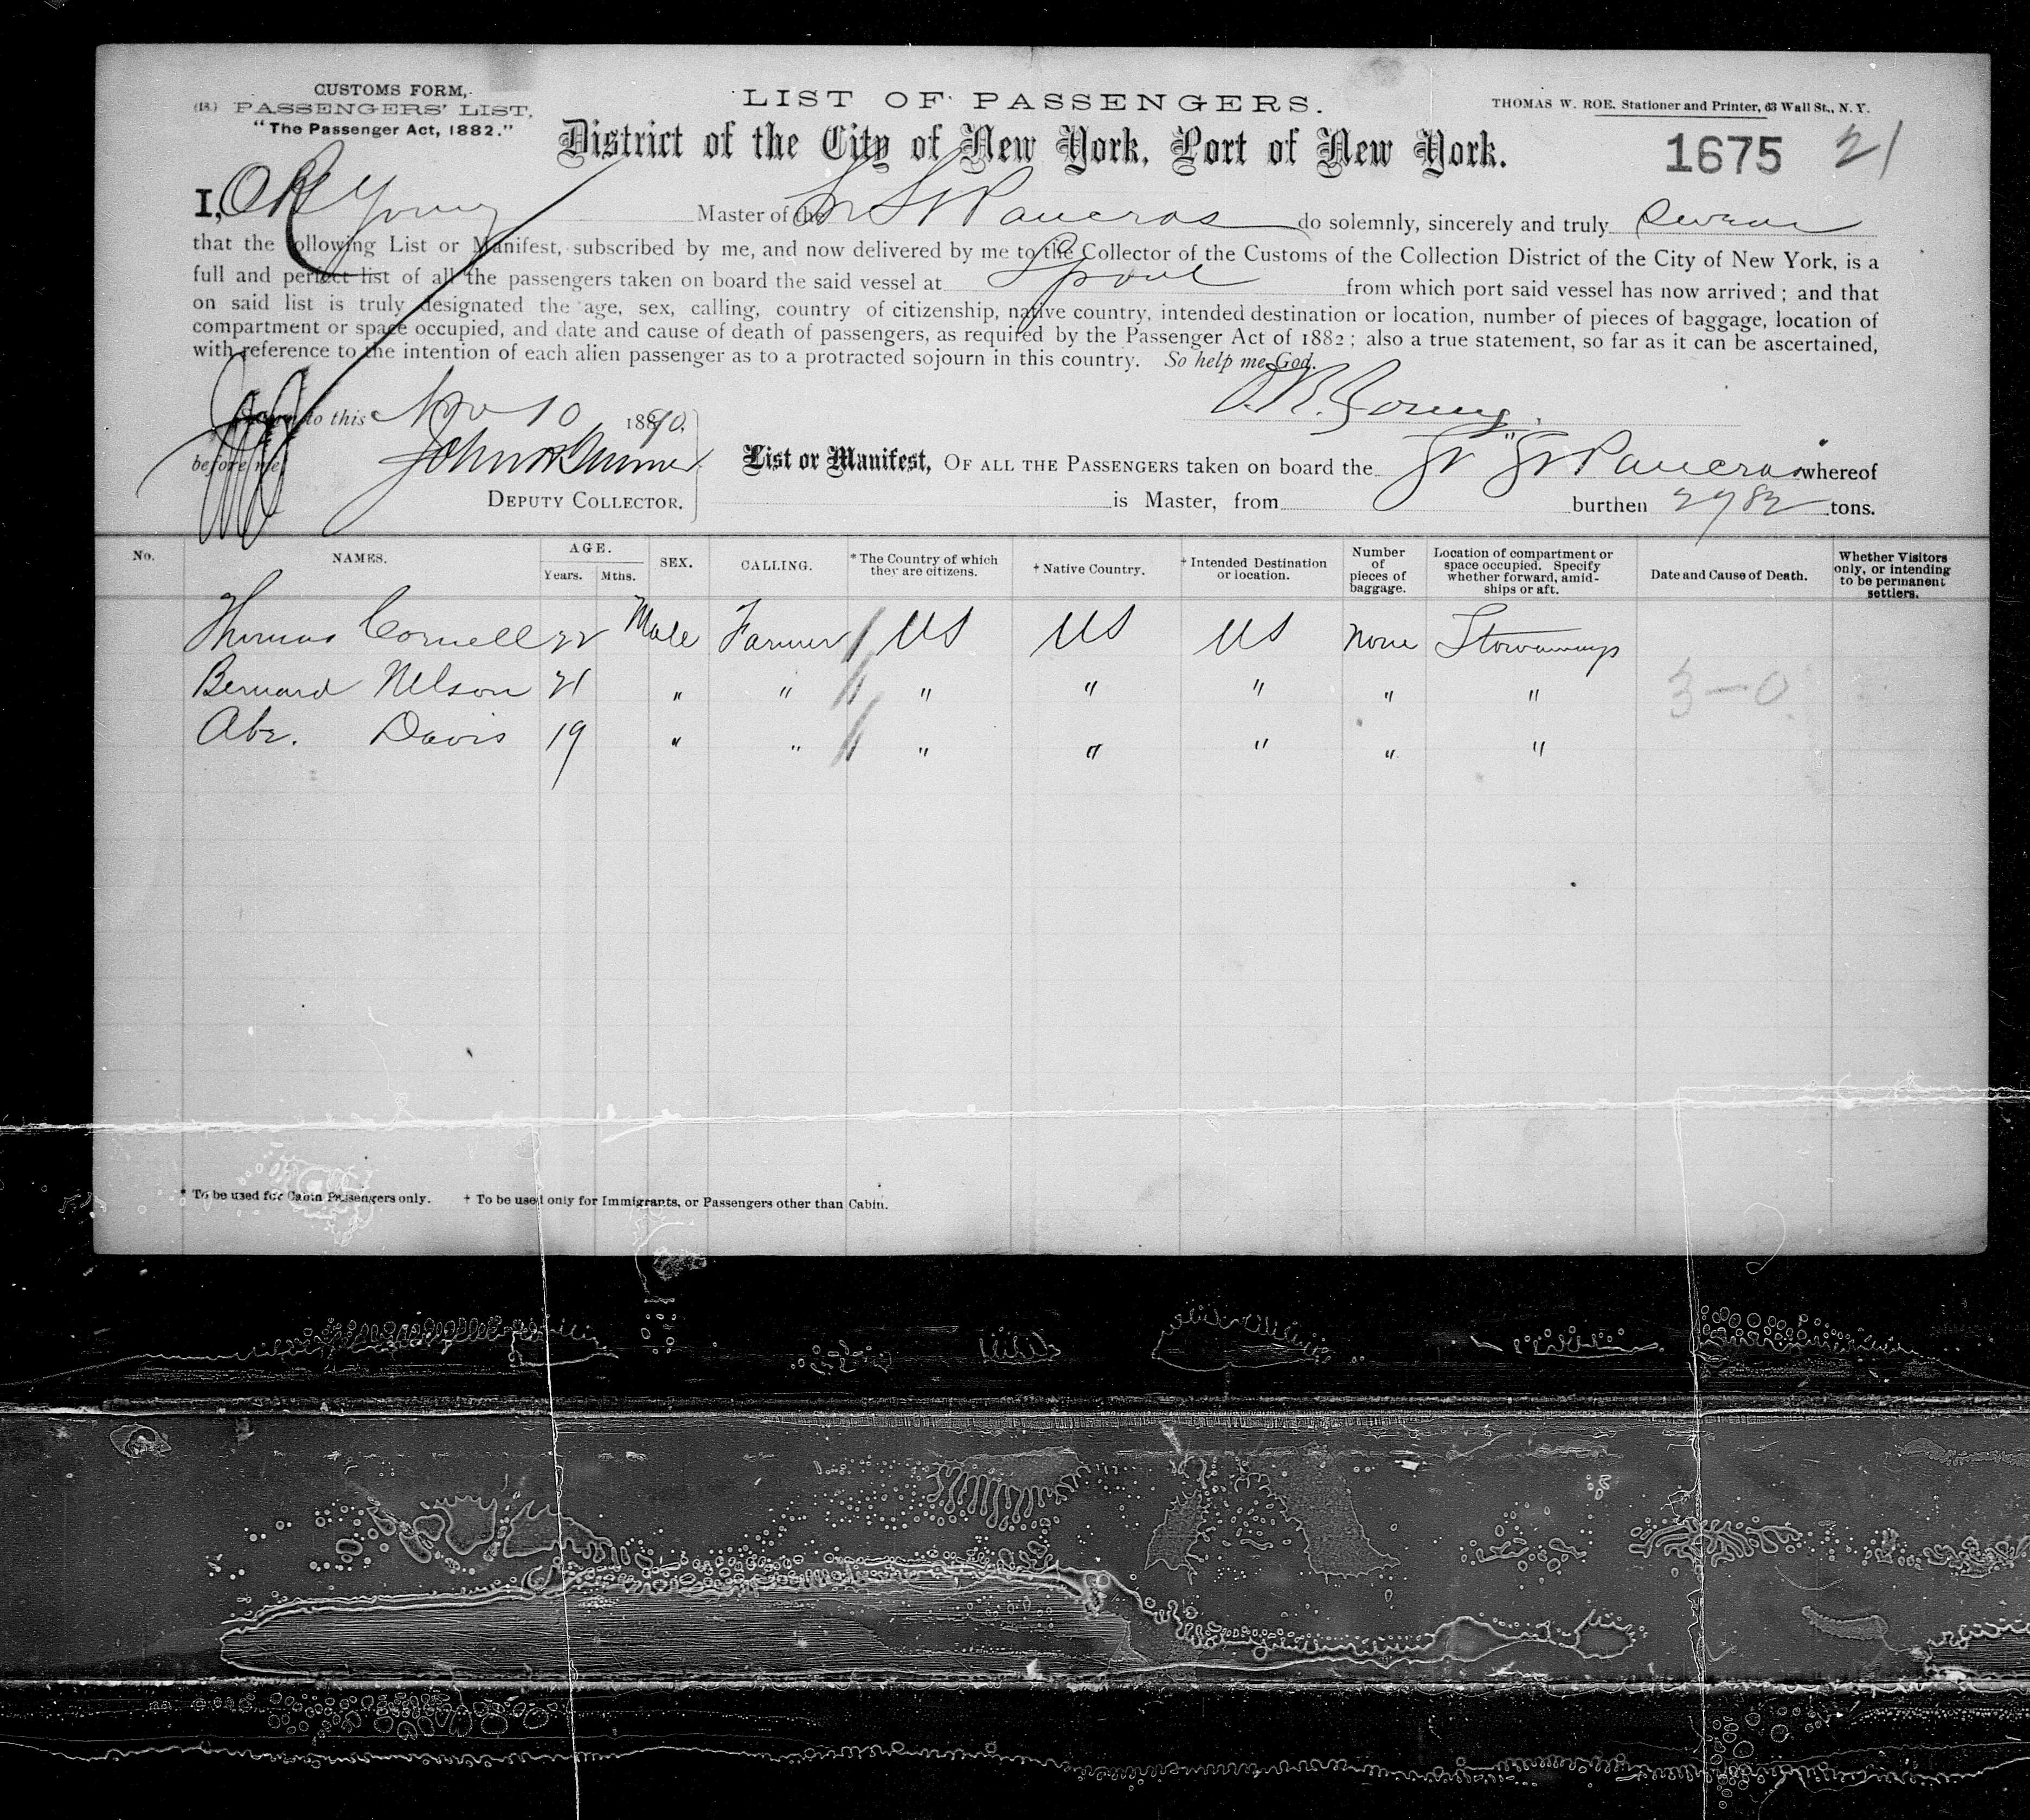 CUSTOMS FORM,
(18.) PASSENGERS' LIST,
"The Passenger Act, 1882."
LIST OF PASSENGERS.
THOMAS W. ROE. Stationer and Printer, 63 Wall St., N. Y.
District of the City of New York, Port of New York.
1675 21
I, Young Master of the St Pancras do solemnly, sincerely and truly swear
that the following List or Manifest, subscribed by me, and now delivered by me to the Collector of the Customs of the Collection District of the City of New York, is a
full and perfect list of all the passengers taken on board the said vessel at Lpool from which port said vessel has now arrived; and that
on said list is truly designated the age, sex, calling, country of citizenship, native country, intended destination or location, number of pieces of baggage, location of
compartment or space occupied, and date and cause of death of passengers, as required by the Passenger Act of 1882; also a true statement, so far as it can be ascertained,
with reference to the intention of each alien passenger as to a protracted sojourn in this country. So help me God.
O.R. Young.
Sworn to this Nov 10 1890.
before me
DEPUTY COLLECTOR.
List or Manifest, OF ALL THE PASSENGERS taken on board the St Pancras whereof
is Master, from burthen 2982 tons.
No. NAMES. AGE. Years. Mths. SEX. CALLING. * The Country of which they are citizens. † Native Country. † Intended Destination or location. Number of pieces of baggage. Location of compartment or space occupied. Specify whether forward, amidships or aft. Date and Cause of Death. Whether Visitors only, or intending to be permanent settlers.
Thomas Cornell 22 Male Farmer US US US None Stowaways
Bernard Nelson 21 " " " " " " " 3-0
Abr. Davis 19 " " " " " " "
* To be used for Cabin Passengers only. † To be used only for Immigrants, or Passengers other than Cabin.